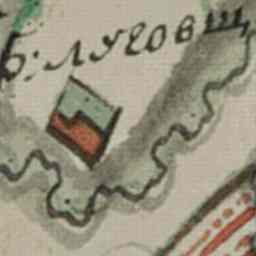 Б: ЛУГОВЩ